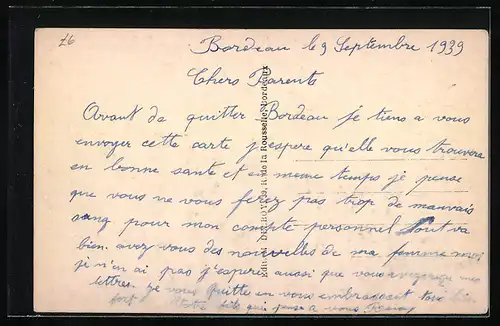 £6
Bordeau le 9 Septembre 1939
Chers Parents
Avant de quitter Bordeau je tiens a vous
envoyer cette carte j'espere qu'elle vous trouvera
en bonne sante et en meme temps je pense
que vous ne vous ferez pas trop de mauvais
sang pour mon compte personnel tout va
bien. avez vous des nouvelles de ma femme moi
je n'en ai pas j'espere aussi que vous
lettres. je vous quitte en vous embrassant tous bien
fort Votre fils qui pense a vous
rue de la Rousselle Bordeaux